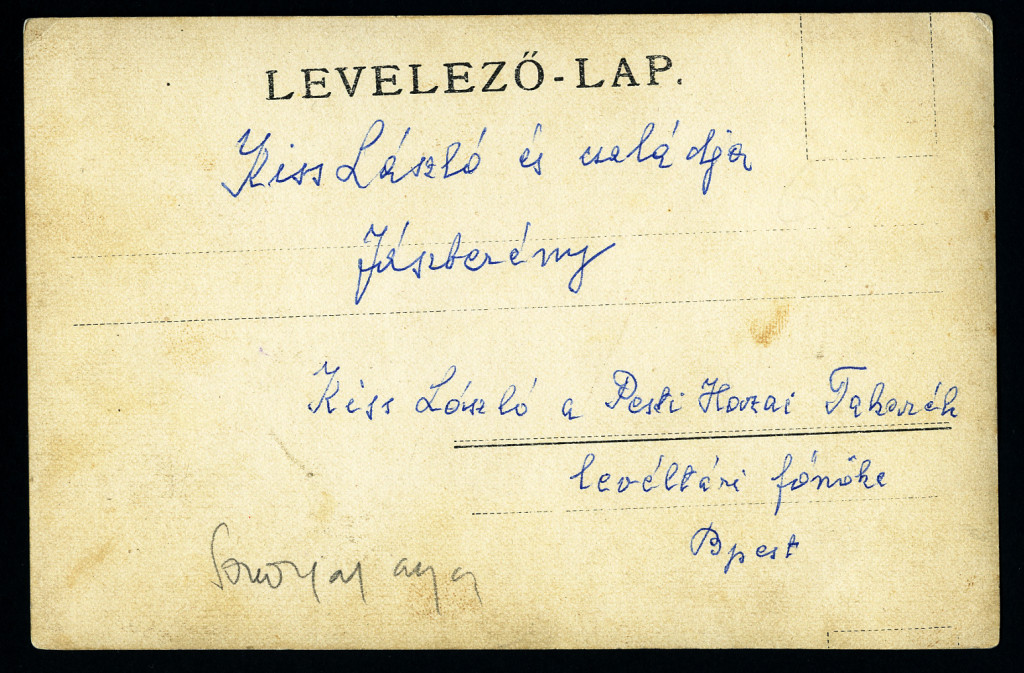 LEVELEZŐ-LAP.
Kiss László és családja
Jászberény
Kiss László a Pesti Hazai Takarék
levéltári főnöke
Bpest